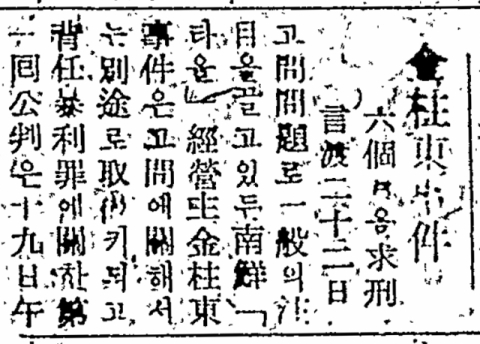 金桂東事件
六個月을求刑
言渡二十二日
고問問題로一般의注
目을끌고있든南鮮「
타올」經營主金桂東
事件은고問에關해서
는別途로取扱키되고
背任暴利罪에關한第
一回公判은十九日午